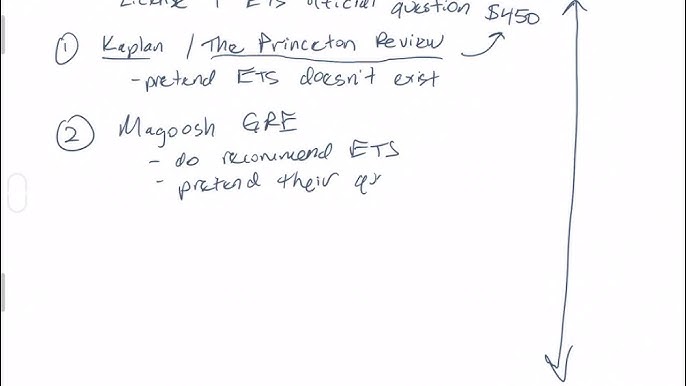 License 1 ETS official question $450
① Kaplan / The Princeton Review
- pretend ETS doesn't exist
② Magoosh GRE
- do recommend ETS
- pretend their qs